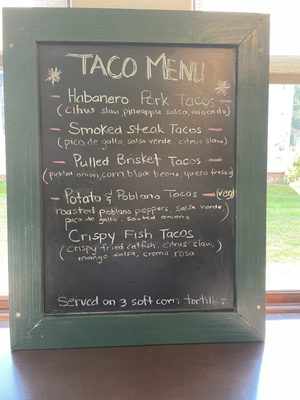 TACO MENU
- Habanero Pork Tacos -
(citrus slaw, pineapple salsa, avocado)
- Smoked Steak Tacos -
(pico de gallo, salsa verde, citrus slaw)
- Pulled Brisket Tacos -
(pickled onion, corn, black beans, queso fresco)
- Potato & Poblano Tacos - (veg)
roasted poblano peppers, salsa verde
pico de gallo, sauteed onions)
Crispy Fish Tacos
(crispy fried catfish, citrus slaw,
mango salsa, crema rosa
Served on 3 soft corn tortillas